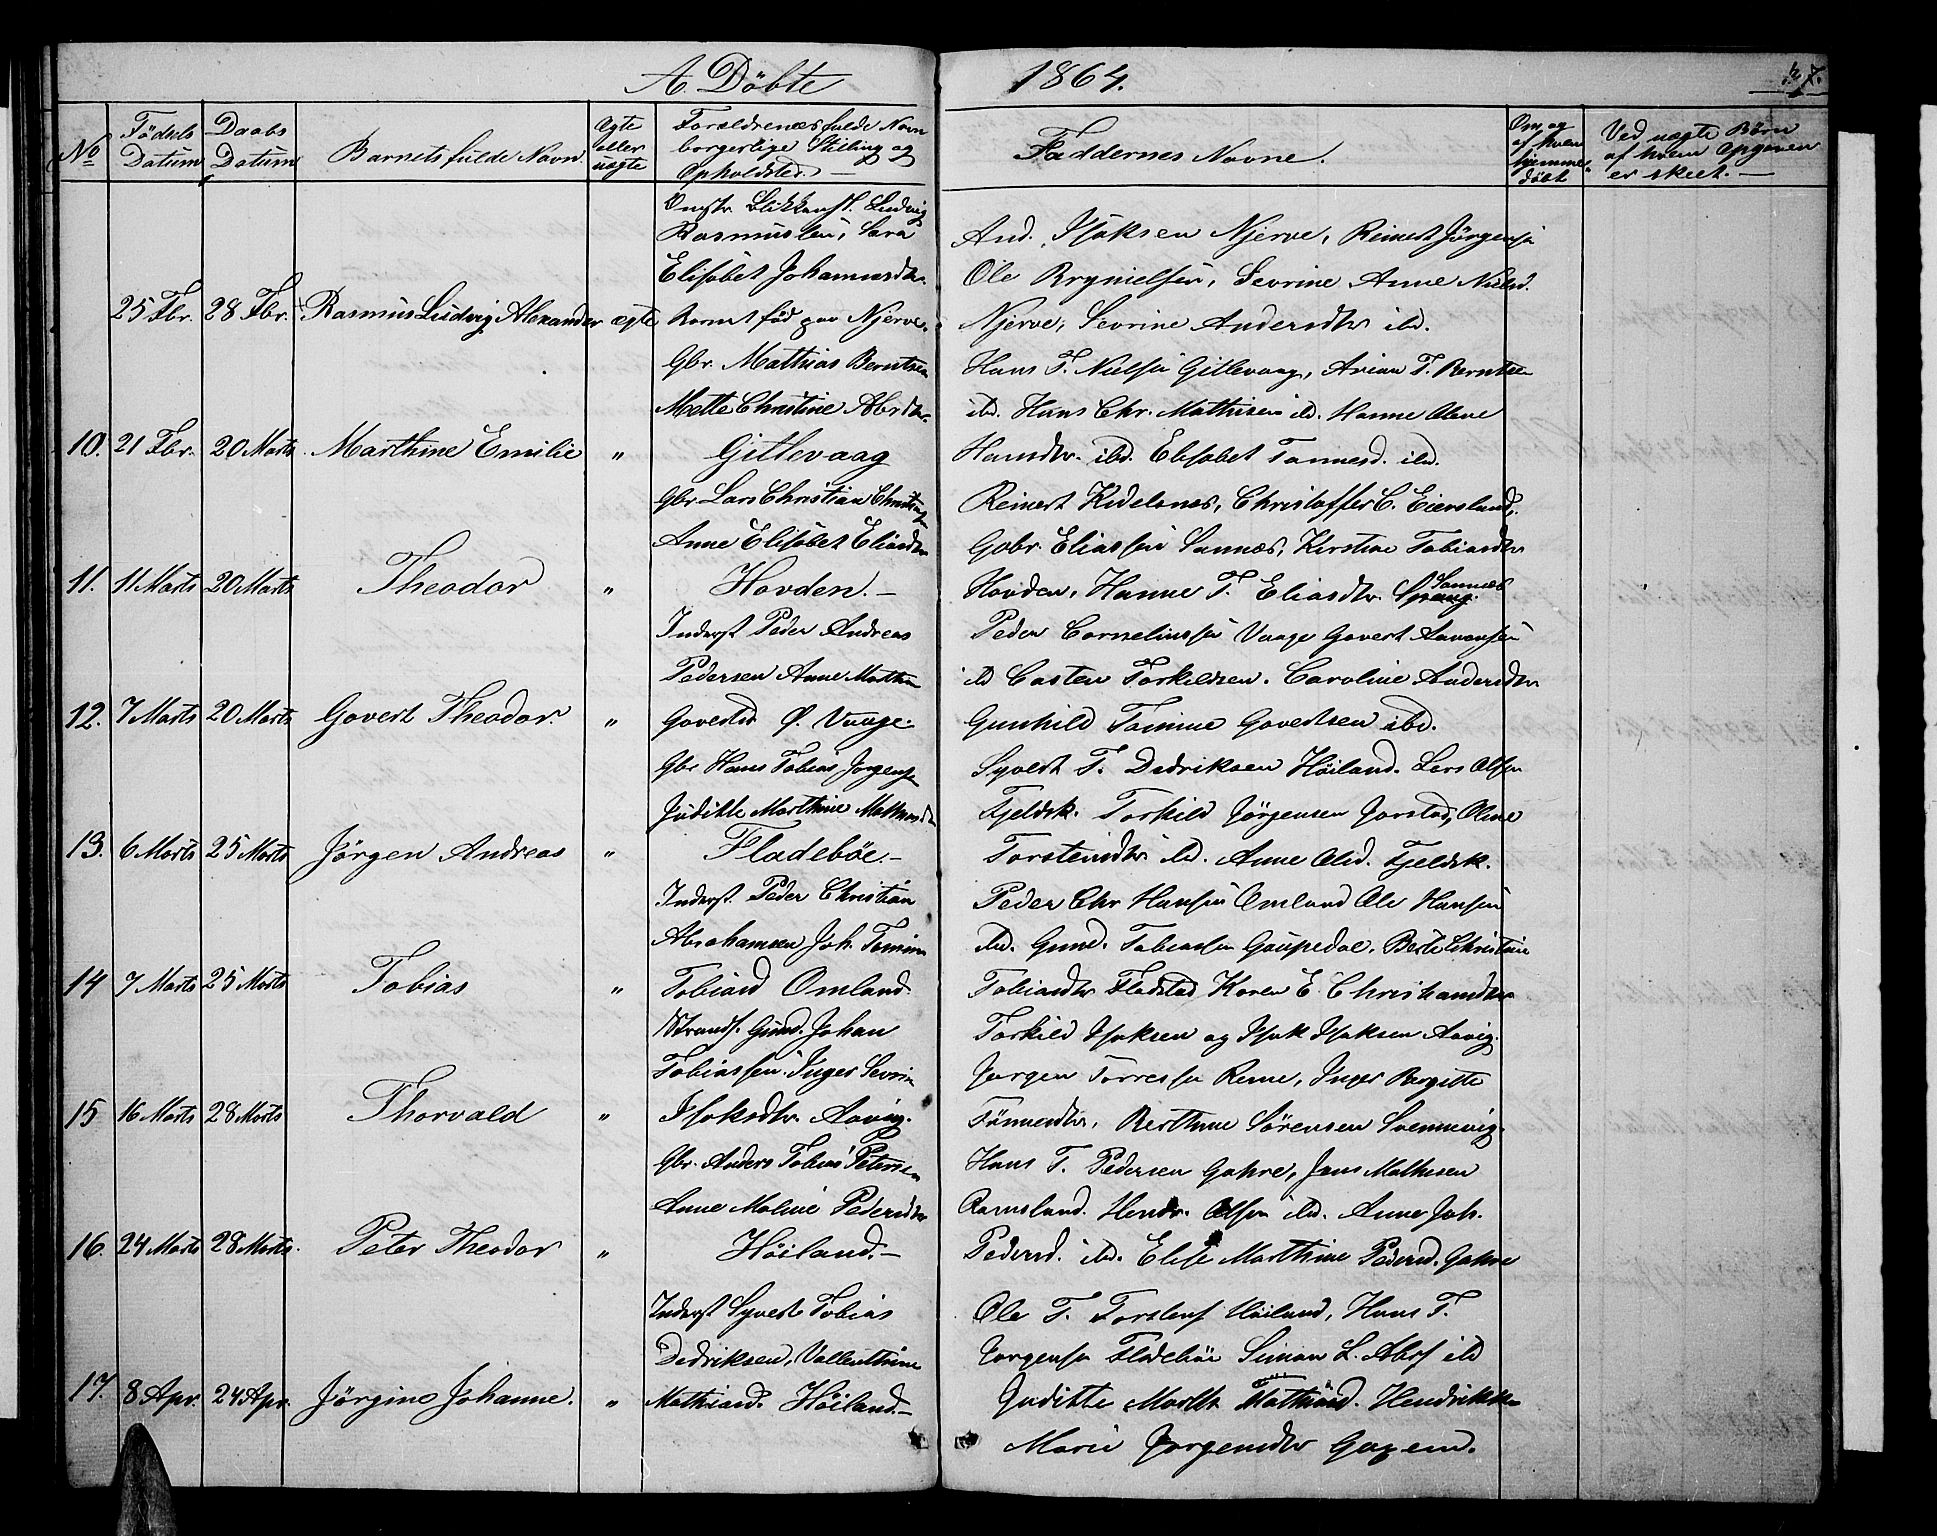 A. Döbte
1864.
7.
No
Föderls Datum
Daabs Datum
Barnets fulde Navn.
Ægte eller uægte
Forældrenes fulde Navn borgerlige Stilling og Opholdsted.
Faddernes Navne.
Om og af hvem hjemme döbt
Ved uægte Börn af hvem Opgaven er skeet.
25 Fbr. 28 Fbr. Rasmus Ludvig Alexander ægte
Ludvig
Rasmussen, Sara
Elisabet Johannesdtr.
Barnet fød paa Njerve.
And. Isaksen Njerve, Reinert Jørgensen
Ole Brynielsen, Sevrine Anne Nielsd.
Njerve, Sevrine Andersdtr ibd.
10. 21 Fbr. 20 Marts Marthine Emilie "
Gbr. Mathias Berntsen
Mette Christine Absdtr.
Gitlevaag
Hans T. Nielsen Gitlevaag, Arian T. Berntsen
ibd. Hans Chr. Mathisen ibd. Hanne Olene
Hansdtr. ibd. Elisabet Tønnesd. ibd.
11. 11 Marts 20 Marts Theodor "
Gbr Lars Christian Christensen
Anne Elisabet Eliasdtr
Hovden.
Reinert Kidelsnes, Christoffer C. Eiersland,
Gabr. Eliassen Sannæs, Kirstine Tobiasdtr
Hovden, Hanne T. Eliasdtr. Sannæs
12. 7 Marts 20 Marts Govert Theodor. "
Inderst Peder Andreas
Pedersen Anne Marthea
Govertsd Ø. Vaage.
Peder Corneliussen Vaage Govert Aanonsen
ibd Casten Torkildsen. Caroline Andersdtr
Gunhild Tomine Govertsen ibd.
13. 6 Marts 25 Marts Jørgen Andreas "
Gbr Hans Tobias Jørgensen
Juditte Marthine Mathiasd
Fladebøe.
Syvert T. Dedriksen Høiland. Lars Olsen
Fjeldsk. Torkild Jørgensen Jorstad, Olene
Torsteinsdtr ibd. Anne Olsd. Fjeldsk.
14 7 Marts 25 Marts Tobias "
Inderst. Peder Christian
Abrahamsen Joh. Tomine
Tobiasd Omland.
Peder Chr Hansen Omland Ole Hansen
ibd. Gund. Tobiassen Gaupedal, Berte Christine
Tobiasdtr Fladstad Karen E. Christiansdtr
15 16 Marts 28 Marts Thorvald "
Strands. Gund. Johan
Tobiassen. Inger Sevrine
Isaksdtr. Aavig.
Torkild Isaksen og Isak Isaksen Aavig.
Jørgen Torresen Reme, Inger Bergitte
Tønnesdtr, Berthine Sørensen Svennevig.
16. 24 Marts 28 Marts. Peter Theodor "
Gbr. Anders Tobias Petersen
Anne Maline Pedersdtr
Høiland.
Hans T. Pedersen Gahre, Jens Mathesen
Ramsland. Hendr. Olsen ibd. Anne Joh.
Pedersd. ibd. Elise Marthine Pedersd. Gahre
17. 8 Apr. 24 Apr. Jørgine Johanne. "
Inderst Syvert Tobias
Dedriksen, Vallenthine
Mathiasd. Høiland.
Ole T. Torstens Høiland, Hans T.
Jørgensen Fladebøe Simon L. Abss ibd
Juditte Marth. Mathiasd. Hendrikke
Marie Jørgensdtr